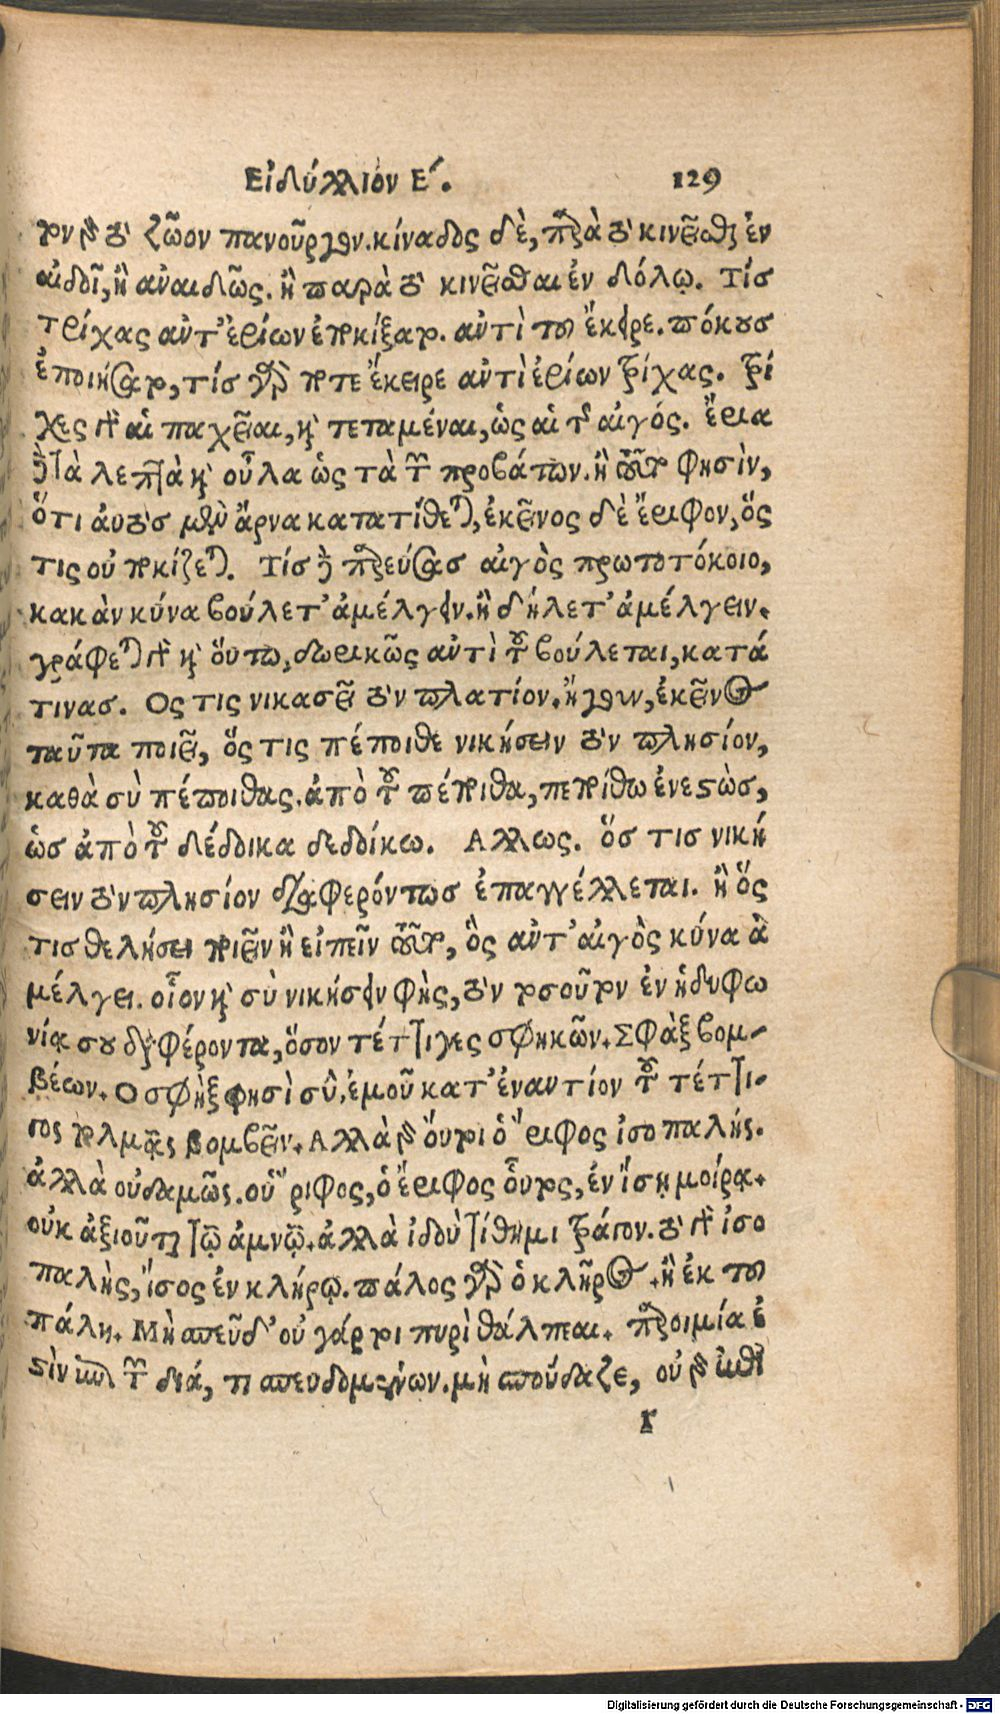 Εἰδύλλιον Ε΄. 129
τον γὰρ τὸ ζῶον πανοῦργον. κίναδος δὲ, παρὰ τὸ κινεῖσθαι ἐν
αἰδοῖ, ἢ ἀναιδῶς. ἢ παρὰ τὸ κινεῖσθαι ἐν δόλῳ. Τίσ
τρίχας ἀντ' ἐρίων ἐποκίξατο. ἀντὶ τοῦ ἔκειρε. πόκουσ
ἐποιήσατο, τίσ γὰρ ποτε ἔκειρε ἀντὶ ἐρίων τρίχας. τρί
χες μὲν αἱ παχεῖαι, καὶ τεταμέναι, ὡς αἱ τῆς αἰγός. ἔρια
δὲ τὰ λεπτὰ καὶ οὖλα ὡς τὰ τῶν προβάτων. ἢ τοῦτο φησὶν,
ὅτι αὐτὸσ μὲν ἄρνα κατατίθεται, ἐκεῖνος δὲ ἔριφον, ὅς
τις οὐ ποκίζεται. Τίσ δὲ παρεύσασ αἰγὸς πρωτοτόκοιο,
κακὰν κύνα βούλετ' ἀμέλγειν. ἢ δήλετ' ἀμέλγειν.
γράφεται μὲν καὶ οὕτω, δωρικῶς ἀντὶ τοῦ βούλεται, κατά
τινασ. Ος τις νικασεῖ τὸν πλατίον. ἤγουν, ἐκεῖνος
ταῦτα ποιεῖ, ὅς τις πέποιθε νικήσειν τὸν πλησίον,
καθὰ σὺ πέποιθας. ἀπὸ τοῦ πέποιθα, πεποίθω ἐνεστὼσ,
ὡσ ἀπὸ τοῦ δέδοικα δεδοίκω. Αλλως. ὅσ τισ νική
σειν τὸν πλησίον διαφερόντωσ ἐπαγγέλλεται. ἢ ὅς
τισ θελήσει ποιεῖν ἢ εἰπεῖν τοῦτο, ὃς ἀντ' αἰγὸς κύνα ἀ
μέλγει. οἷον καὶ σὺ νικήσειν φῂς, τὸν τοσοῦτον ἐν ἡδυφω
νίᾳ σου διαφέροντα, ὅσον τέττιγες σφηκῶν. Σφὰξ βομ-
βέων. Ο σφὴξ φησὶ σὺ, ἐμοῦ κατ' ἐναντίον τοῦ τέττι-
γος τολμᾷς βομβεῖν. Αλλὰ γὰρ οὔτοι ὁ ἔριφος ἰσοπαλής.
ἀλλὰ οὐδαμῶς. οὔριφος, ὁ ἔριφος οὗτος, ἐν ἴσῃ μοίρᾳ.
οὐκ ἀξιοῦται τῷ ἀμνῷ. ἀλλὰ ἰδοὺ τίθημι τράγον. τὸ μὲν ἰσο
παλὴς, ἴσος ἐν κλήρῳ. πάλος γὰρ ὁ κλῆρος. ἢ ἐκ τοῦ
πάλη. Μὴ σπεῦδ' οὐ γάρ τοι πυρὶ θάλπεαι. παροιμία ἐ
στὶν ἐπὶ τῶν διά, τι σπευδομένων. μὴ σπούδαζε, οὐ γὰρ
r
Digitalisierung gefördert durch die Deutsche Forschungsgemeinschaft - DFG